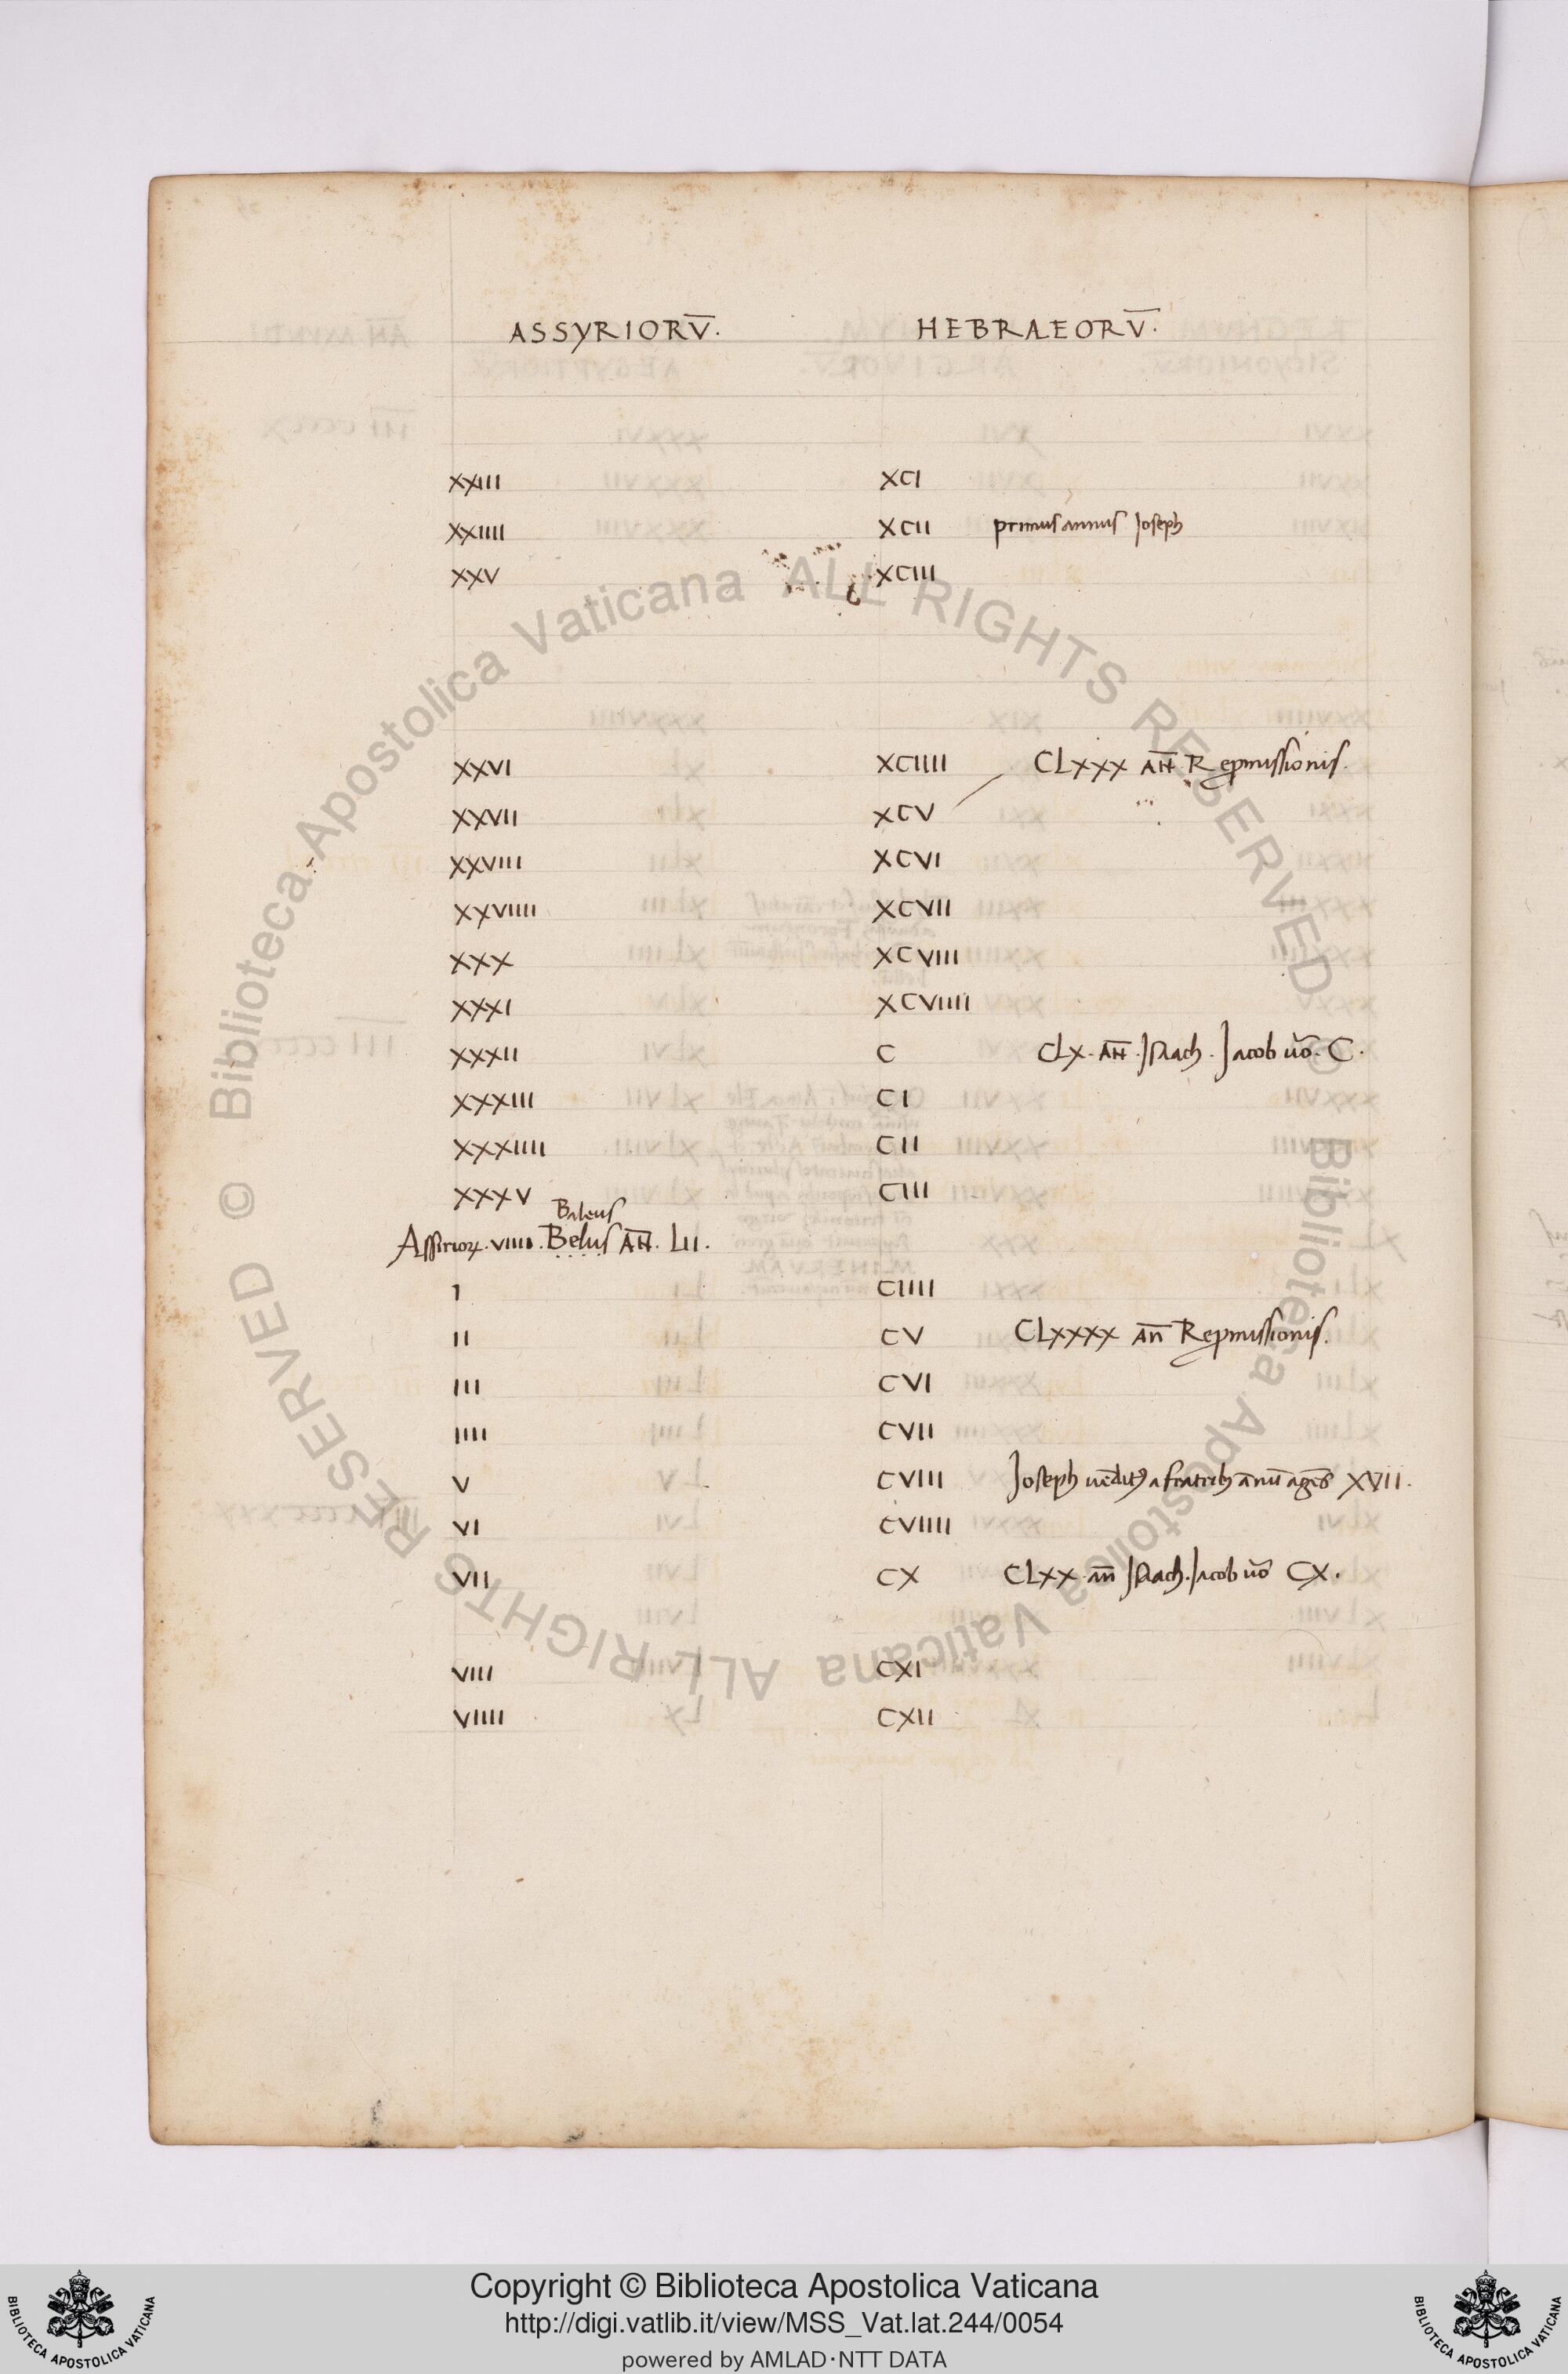 ASSYRIORV̅. HEBRAEORV̅.
XXIII XCI
XXIIII XCII primus annus Joseph
XXV XCIII
XXVI XCIIII CLXXX AN̅ Repmissionis.
XXVII XCV
XXVIII XCVI
XXVIIII XCVII
XXX XCVIII
XXXI XCVIIII
XXXII C CLX. AN̅. Isaach. Jacob uo̅. C.
XXXIII CI
XXXIIII CII
XXXV CIII
Baleus
Assirioꝝ. VIIII. Belus AN̅. LII.
I CIIII
II CV CLXXXX An̅ Repmissionis.
III CVI
IIII CVII
V CVIII Joseph ue̅ditꝰ a fratribꝫ a̅nu̅ age̅s XVII.
VI CVIIII
VII CX CLXX an̅ Isaach. Jacob uo̅ CX.
VIII CXI
VIIII CXII
© Biblioteca Apostolica Vaticana ALL RIGHTS RESERVED
© Biblioteca Apostolica Vaticana ALL RIGHTS RESERVED
Copyright © Biblioteca Apostolica Vaticana
http://digi.vatlib.it/view/MSS_Vat.lat.244/0054
powered by AMLAD·NTT DATA
BIBLIOTECA APOSTOLICA VATICANA
BIBLIOTECA APOSTOLICA VATICANA